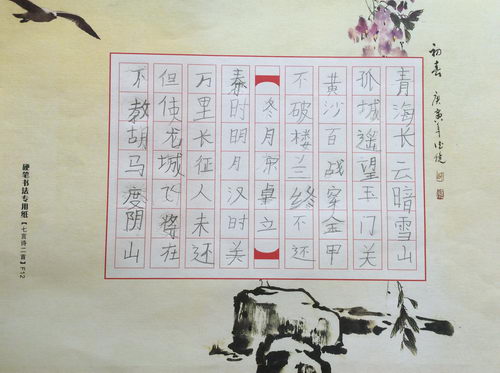 初春
庚寅年
青海长云暗雪山
孤城遥望玉门关
黄沙百战穿金甲
不破楼兰终不还
冬月 卓立
秦时明月汉时关
万里长征人未还
但使龙城飞将在
不教胡马度阴山
硬笔书法专用纸【七言诗二首】F12